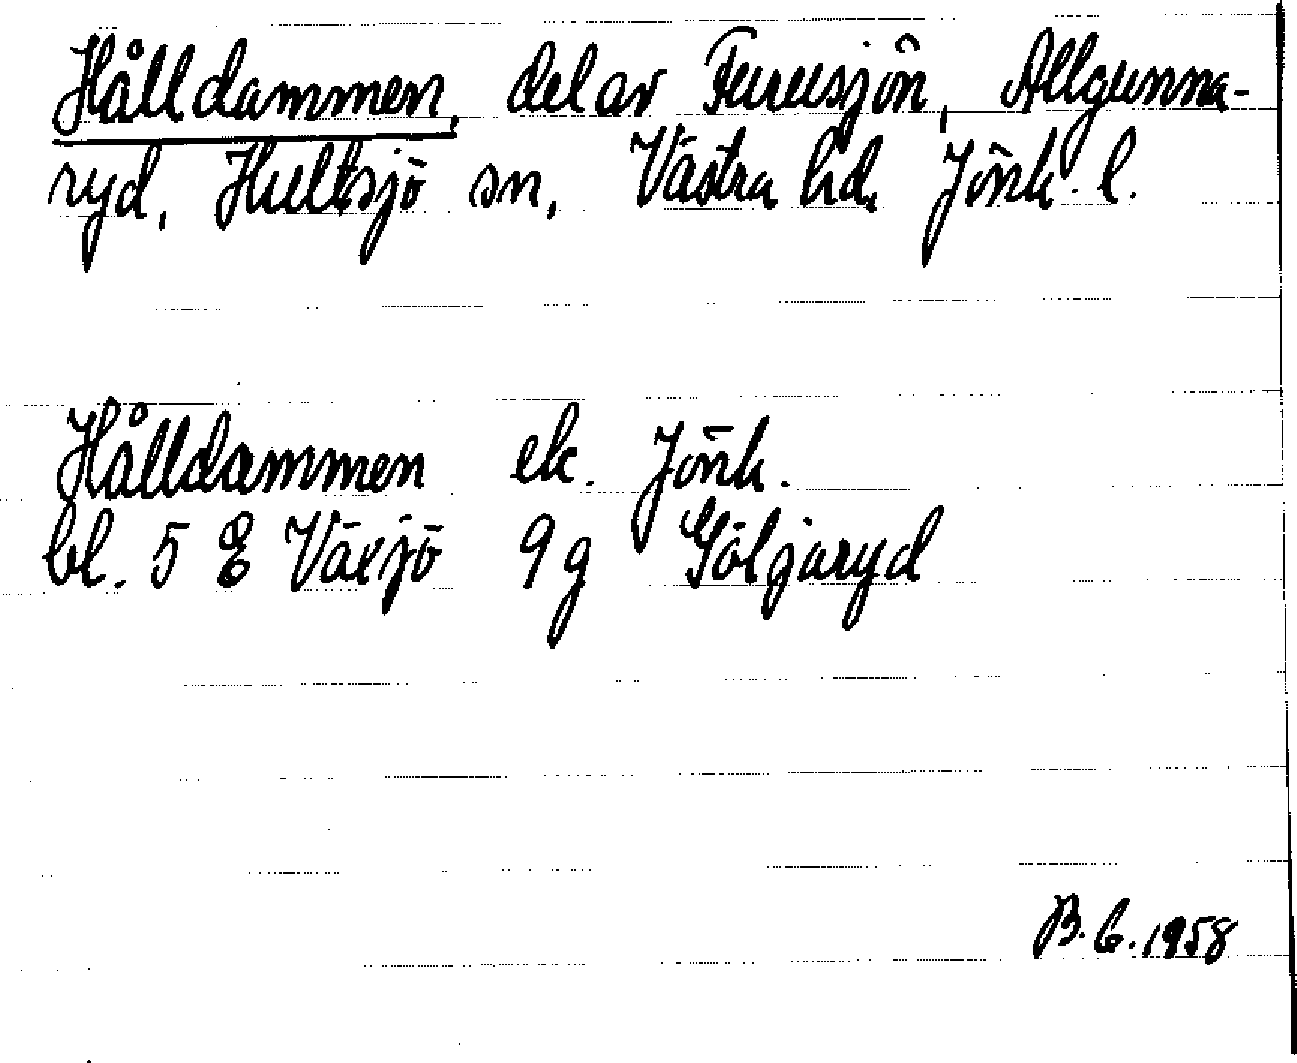 Hålldammen, del av Furusjön, Allgunna-
ryd, Hultsjö sn, Västra hd, Jönk. l.
Hålldammen ek. Jönk.
bl. 5 E Växjö 9g Göljaryd
B.G. 1958